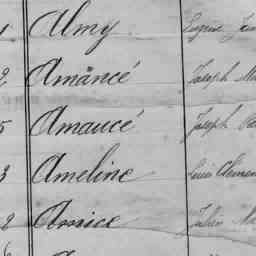 1 Almy Eugène
2 Amâncé Joseph
5 Amaucé Joseph
3 Ameline Louis Clément
2 Amice Julien